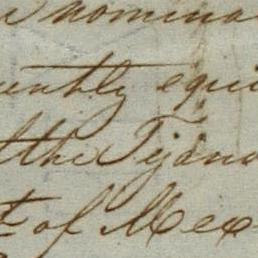 nomina
ently equi
the Tejano
t of Mex